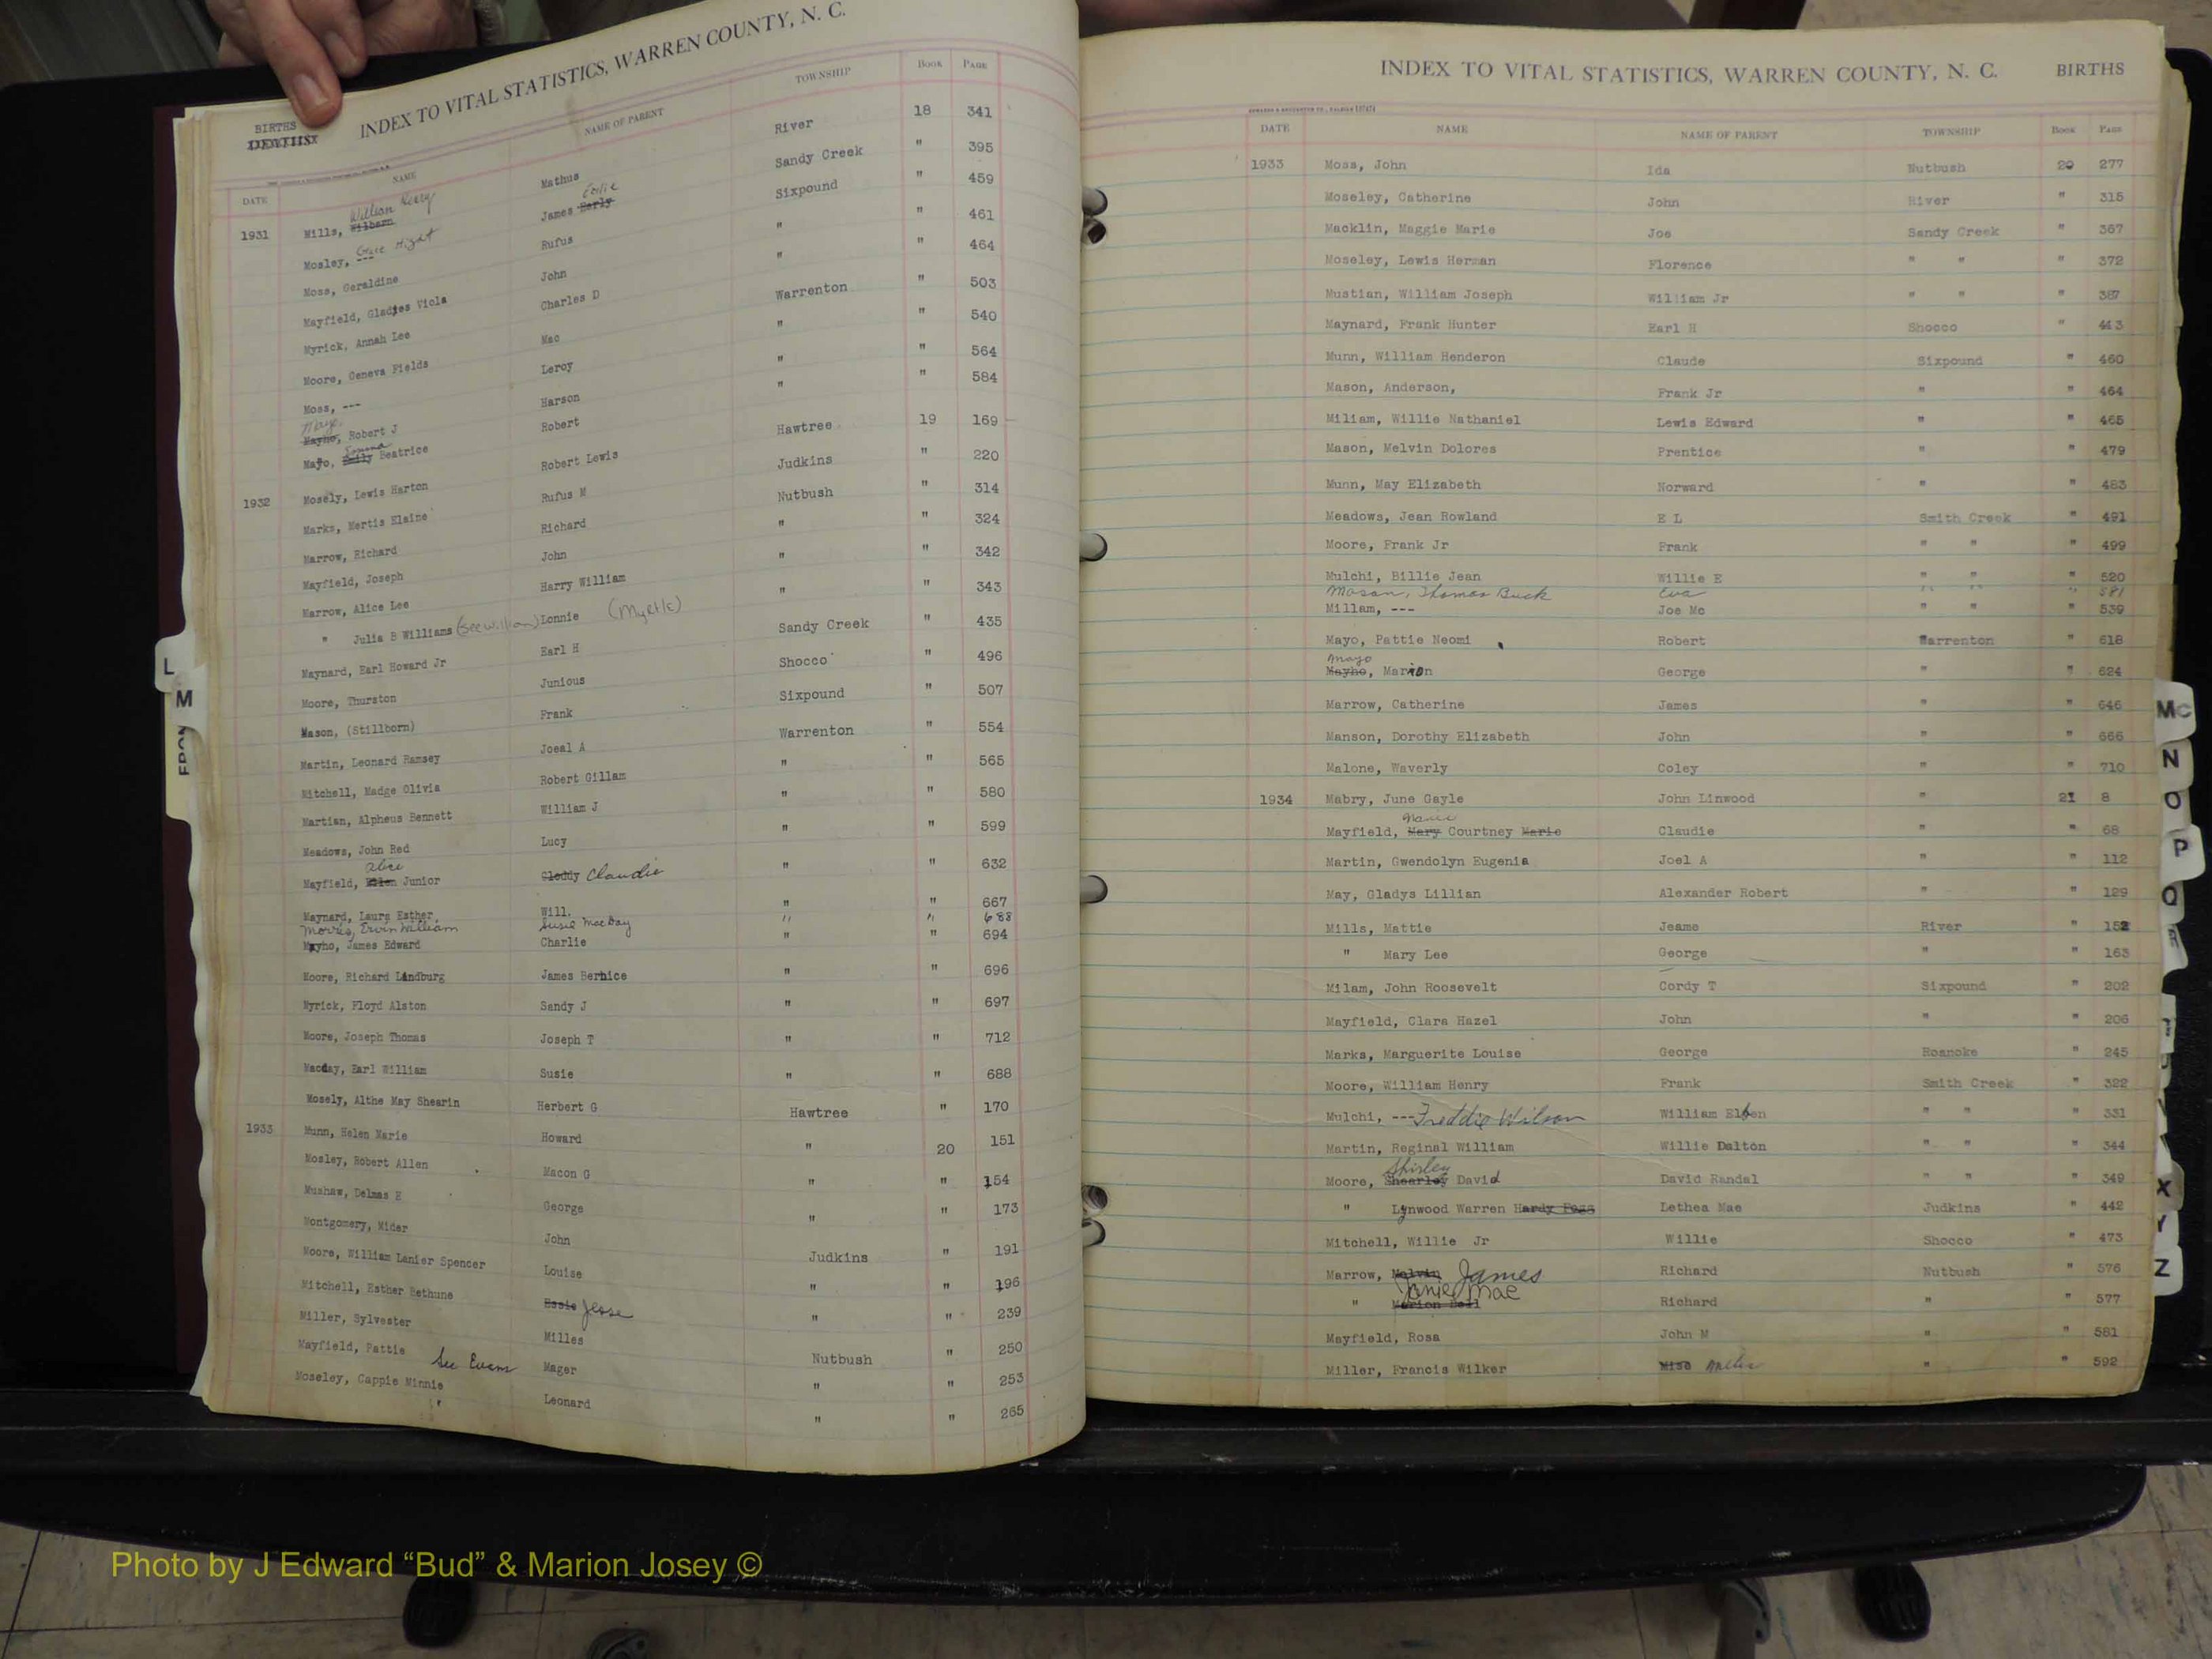 INDEX TO VITAL STATISTICS, WARREN COUNTY, N. C.
BIRTHS
DEATHS
DATE NAME NAME OF PARENT TOWNSHIP BOOK PAGE
1931 Mills, Wilbern William Henry Mathus River 18 341
Mosley, --- Grace Hight James Early Earlie Sandy Creek " 395
Moss, Geraldine Rufus Sixpound " 459
Mayfield, Gladyes Viola John " " 461
Myrick, Annah Lee Charles D " " 464
Moore, Geneva Fields Mac Warrenton " 503
Moss, --- Leroy " " 540
Mayho, Mayo, Robert J Harson " " 564
Mayo, Emily Emma Beatrice Robert " " 584
1932 Mosely, Lewis Harton Robert Lewis Hawtree 19 169
Marks, Mertis Elaine Rufus M Judkins " 220
Marrow, Richard Richard Nutbush " 314
Mayfield, Joseph John " " 324
Marrow, Alice Lee Harry William " " 342
" Julia B Williams (See William) Lonnie (Myrtle) " " 343
Maynard, Earl Howard Jr Earl H Sandy Creek " 435
Moore, Thurston Junious Shocco " 496
Mason, (Stillborn) Frank Sixpound " 507
Martin, Leonard Ramsey Joeal A Warrenton " 554
Mitchell, Madge Olivia Robert Gillam " " 565
Martian, Alpheus Bennett William J " " 580
Meadows, John Red Lucy " " 599
Mayfield, Ellen Alice Junior Cleddy Claudie " " 632
Maynard, Laura Esther, Will. " " 667
Morris, Ervin William Susie MacDay " " 688
Mayho, James Edward Charlie " " 694
Moore, Richard Lindburg James Bernice " " 696
Myrick, Floyd Alston Sandy J " " 697
Moore, Joseph Thomas Joseph T " " 712
Macday, Earl William Susie " " 688
Mosely, Althe May Shearin Herbert G Hawtree " 170
1933 Munn, Helen Marie Howard " 20 151
Mosley, Robert Allen Macon G " " 154
Mushaw, Delmas E George " " 173
Montgomery, Mider John Judkins " 191
Moore, William Lanier Spencer Louise " " 196
Mitchell, Esther Bethune Essie Jesse " " 239
Miller, Sylvester Milles Nutbush " 250
Mayfield, Pattie See Evans Mager " " 253
Moseley, Cappie Minnie Leonard " " 265
L
M
INDEX TO VITAL STATISTICS, WARREN COUNTY, N. C. BIRTHS
DATE NAME NAME OF PARENT TOWNSHIP BOOK PAGE
1933 Moss, John Ida Nutbush 20 277
Moseley, Catherine John River " 315
Macklin, Maggie Marie Joe Sandy Creek " 367
Moseley, Lewis Herman Florence " " " 372
Mustian, William Joseph William Jr " " " 387
Maynard, Frank Hunter Earl H Shocco " 443
Munn, William Henderon Claude Sixpound " 460
Mason, Anderson, Frank Jr " " 464
Miliam, Willie Nathaniel Lewis Edward " " 465
Mason, Melvin Dolores Prentice " " 479
Munn, May Elizabeth Norward " " 483
Meadows, Jean Rowland E L Smith Creek " 491
Moore, Frank Jr Frank " " " 499
Mulchi, Billie Jean Willie E " " " 520
Mason, Thomas Buck Eva " " " 581
Millam, --- Joe Mc " " " 539
Mayo, Pattie Neomi Robert Warrenton " 618
Mayho, Mayo Marion George " " 624
Marrow, Catherine James " " 646
Manson, Dorothy Elizabeth John " " 666
Malone, Waverly Coley " " 710
1934 Mabry, June Gayle John Linwood " 21 8
Mayfield, Mary Courtney Marie Claudie " " 68
Martin, Gwendolyn Eugenia Joel A " " 112
May, Gladys Lillian Alexander Robert " " 129
Mills, Mattie Jeame River " 152
" Mary Lee George " " 163
Milam, John Roosevelt Cordy T Sixpound " 202
Mayfield, Clara Hazel John " " 206
Marks, Marguerite Louise George Roanoke " 245
Moore, William Henry Frank Smith Creek " 322
Mulchi, --- Freddie Wilson William Elben " " " 331
Martin, Reginal William Willie Dalton " " " 344
Moore, Shearley Shirley David David Randal " " " 349
" Lynwood Warren Hardy Pegg Lethea Mae Judkins " 442
Mitchell, Willie Jr Willie Shocco " 473
Marrow, Melvin James Richard Nutbush " 576
" Marion Bell Janie Mae Richard " " 577
Mayfield, Rosa John M " " 581
Miller, Francis Wilker " " 592
MC
N
O
P
Q
X
Y
Z
Photo by J Edward “Bud” & Marion Josey ©